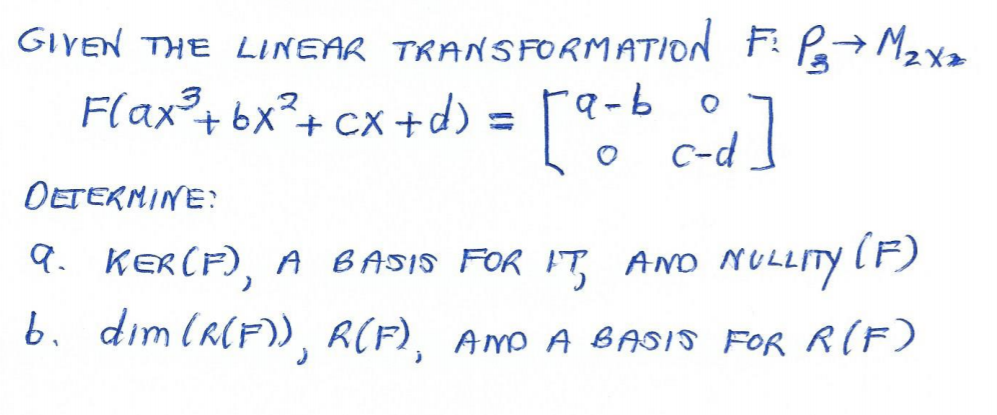 GIVEN THE LINEAR TRANSFORMATION F: P₃→ M₂ₓ₂
F(ax³+ bx²+ cx +d) = [a-b 0
0 c-d]
DETERMINE:
a. KER(F), A BASIS FOR IT, AND NULLITY (F)
b. dim (R(F)), R(F), AND A BASIS FOR R(F)